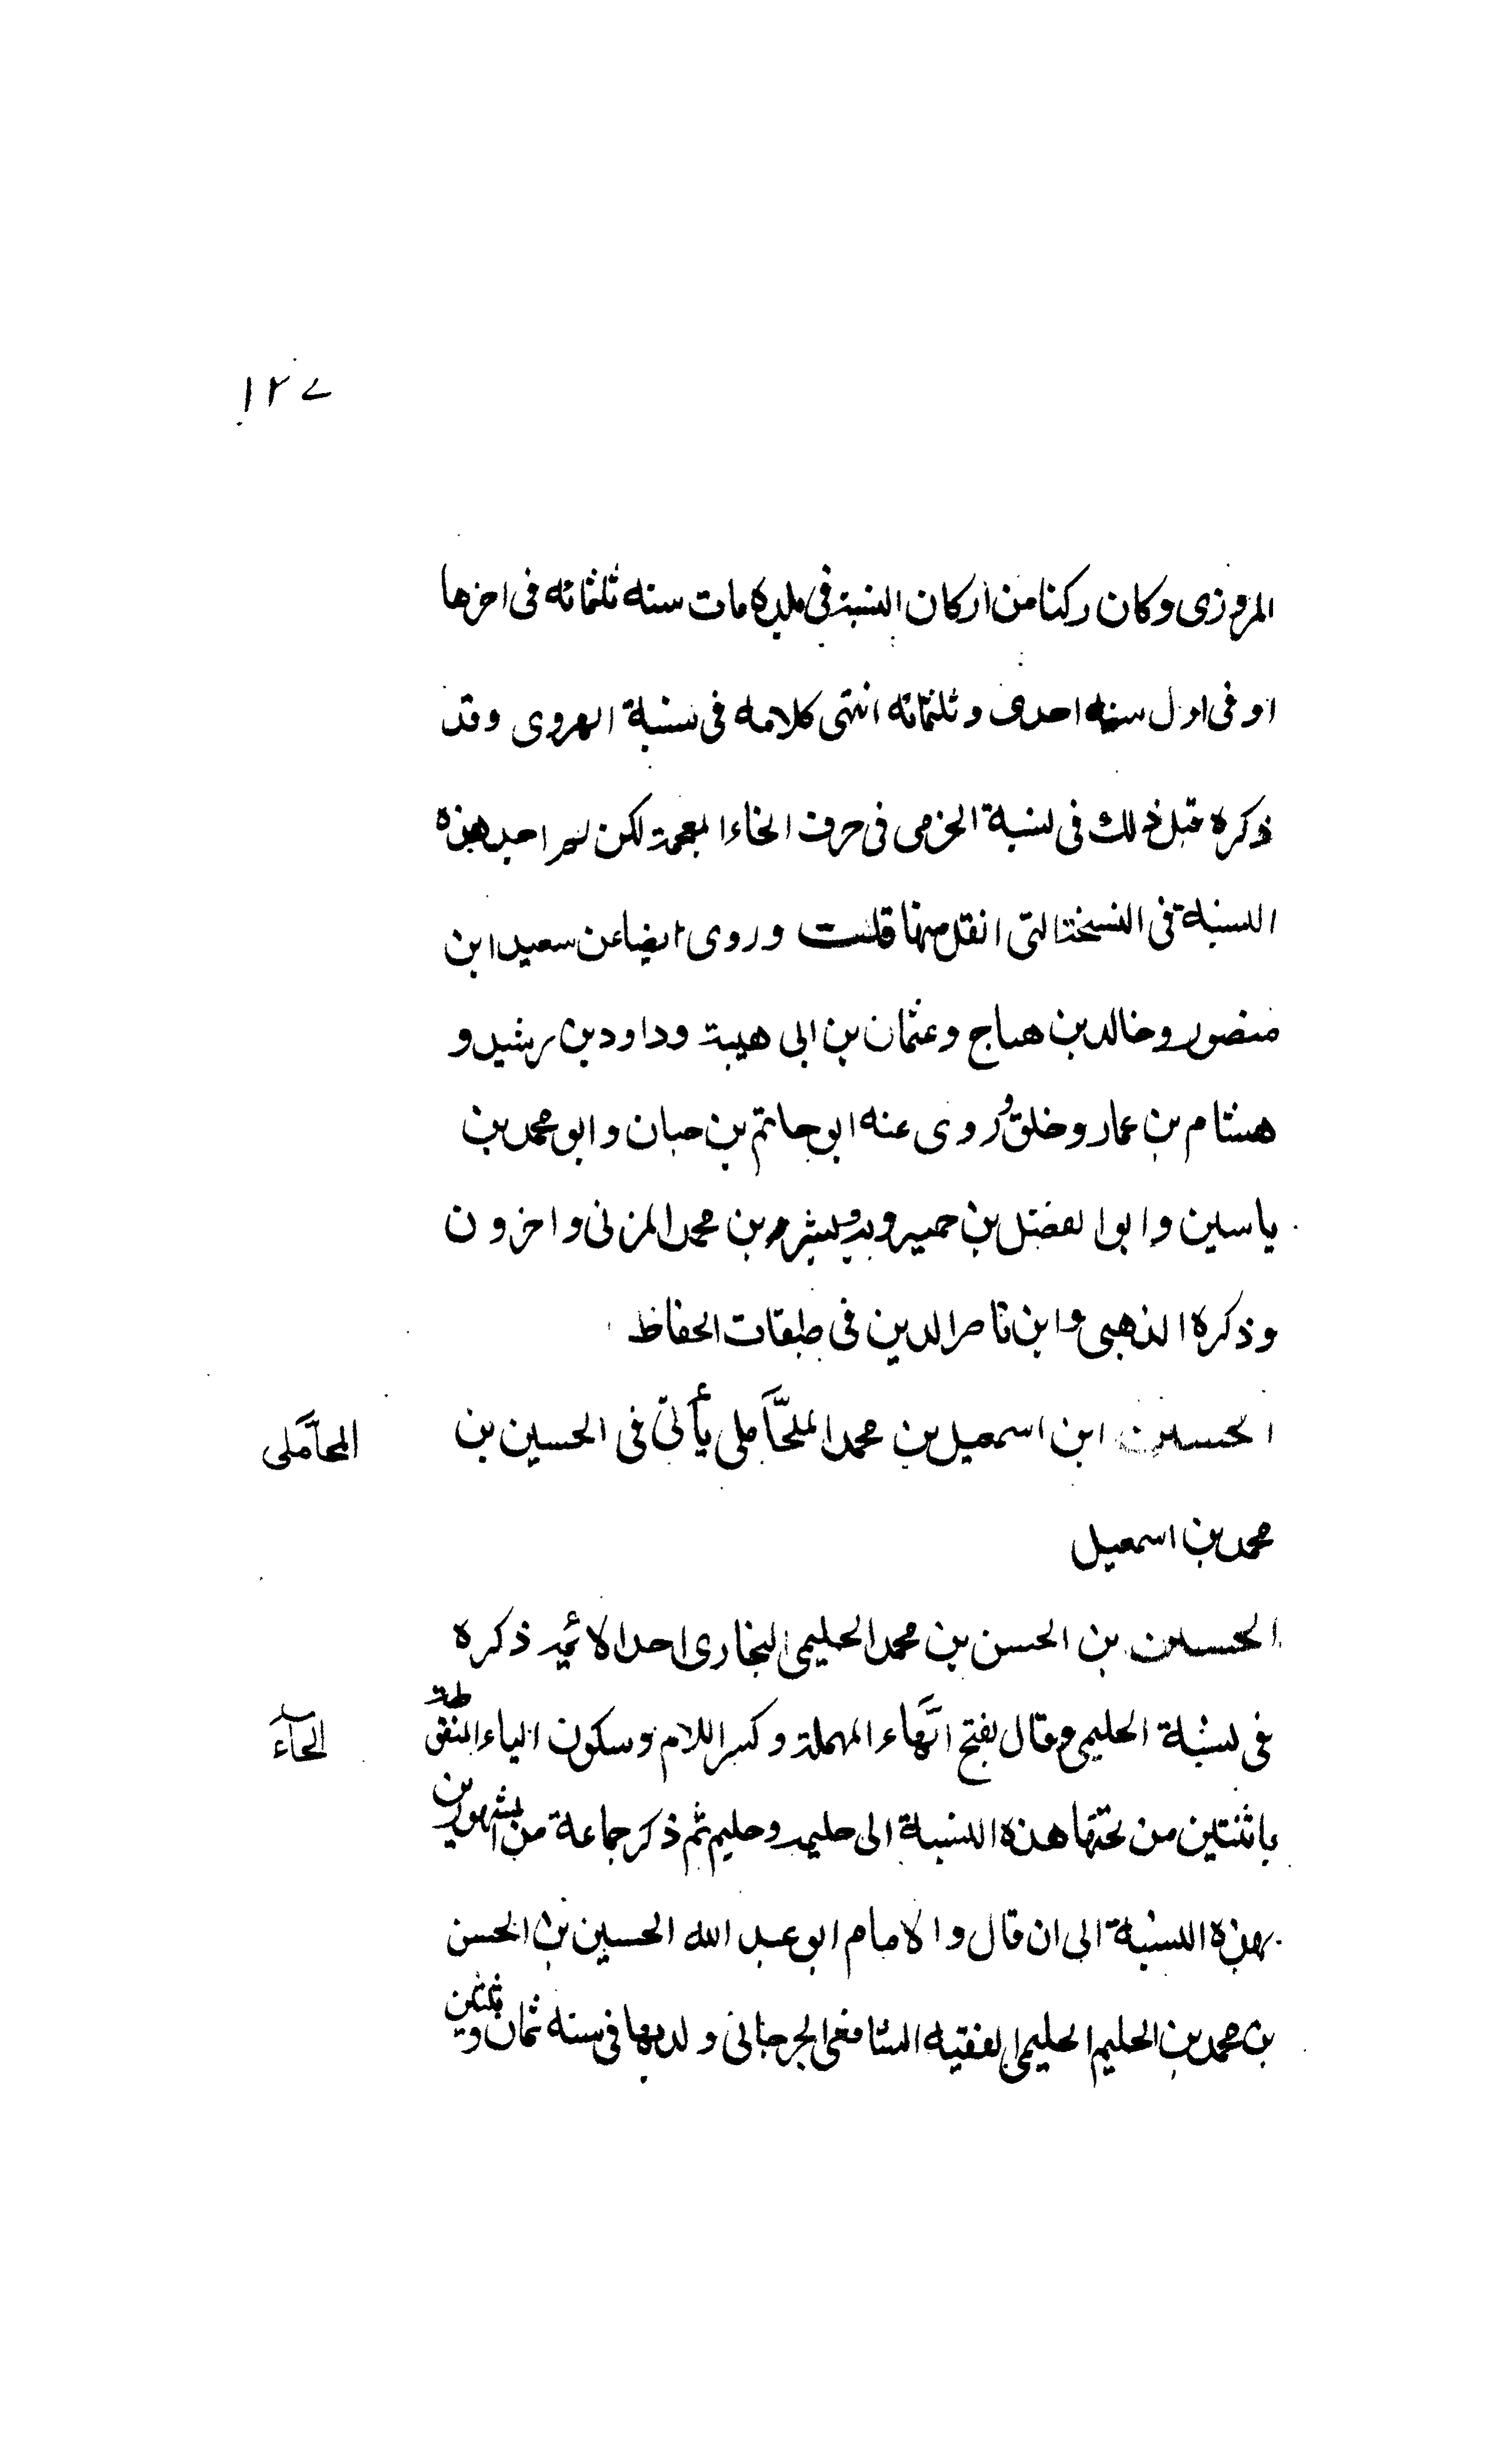 ١٢٧
المروزى وكان ركنا من اركان السنة فى بلده مات سنه ثلثمائه فى اخرها
او فى اول سنه احدى وثلثمائه انتهى كلامه فى نسبة الهروى وقد
ذكره قبل ذلك فى نسبة الخرمى فى حرف الخاء المعجمة لكن لم اجد هذه
النسبة فى النسخة التى انقل منها قلت وروى ايضا عن سعيد ابن
منصور وخالد بن هياج وعثمان بن ابى هيبة وداود بن رشيد و
هشام بن عمار وخلق وروى عنه ابو حاتم بن حبان وابو محمد بن
ياسين وابوا لفضل بن حميرويه وبشر بن محمد المزنى واخرون
وذكره الذهبى وابن ناصر الدين فى طبقات الحفاظ
الحسين ابن اسمعيل بن محمد المحاملى يأتى فى الحسين بن
المحاملى
محمد بن اسمعيل
الحسين بن الحسن بن محمد الحليمى البخارى احد الائمه ذكره
فى نسبة الحليمى وقال بفتح الحاء المهملة وكسر اللام وسكون الياء المنقوطة
الحاء
باثنتين من تحتها هذه النسبة الى حليمه وحليم ثم ذكر جماعة من المشهورين
بهذه النسبة الى ان قال والامام ابو عبد الله الحسين بن الحسن
بن محمد بن الحليم الحليمى الفقيه الشافعى الجرجانى ولد بها فى سنه ثمان وثلثين